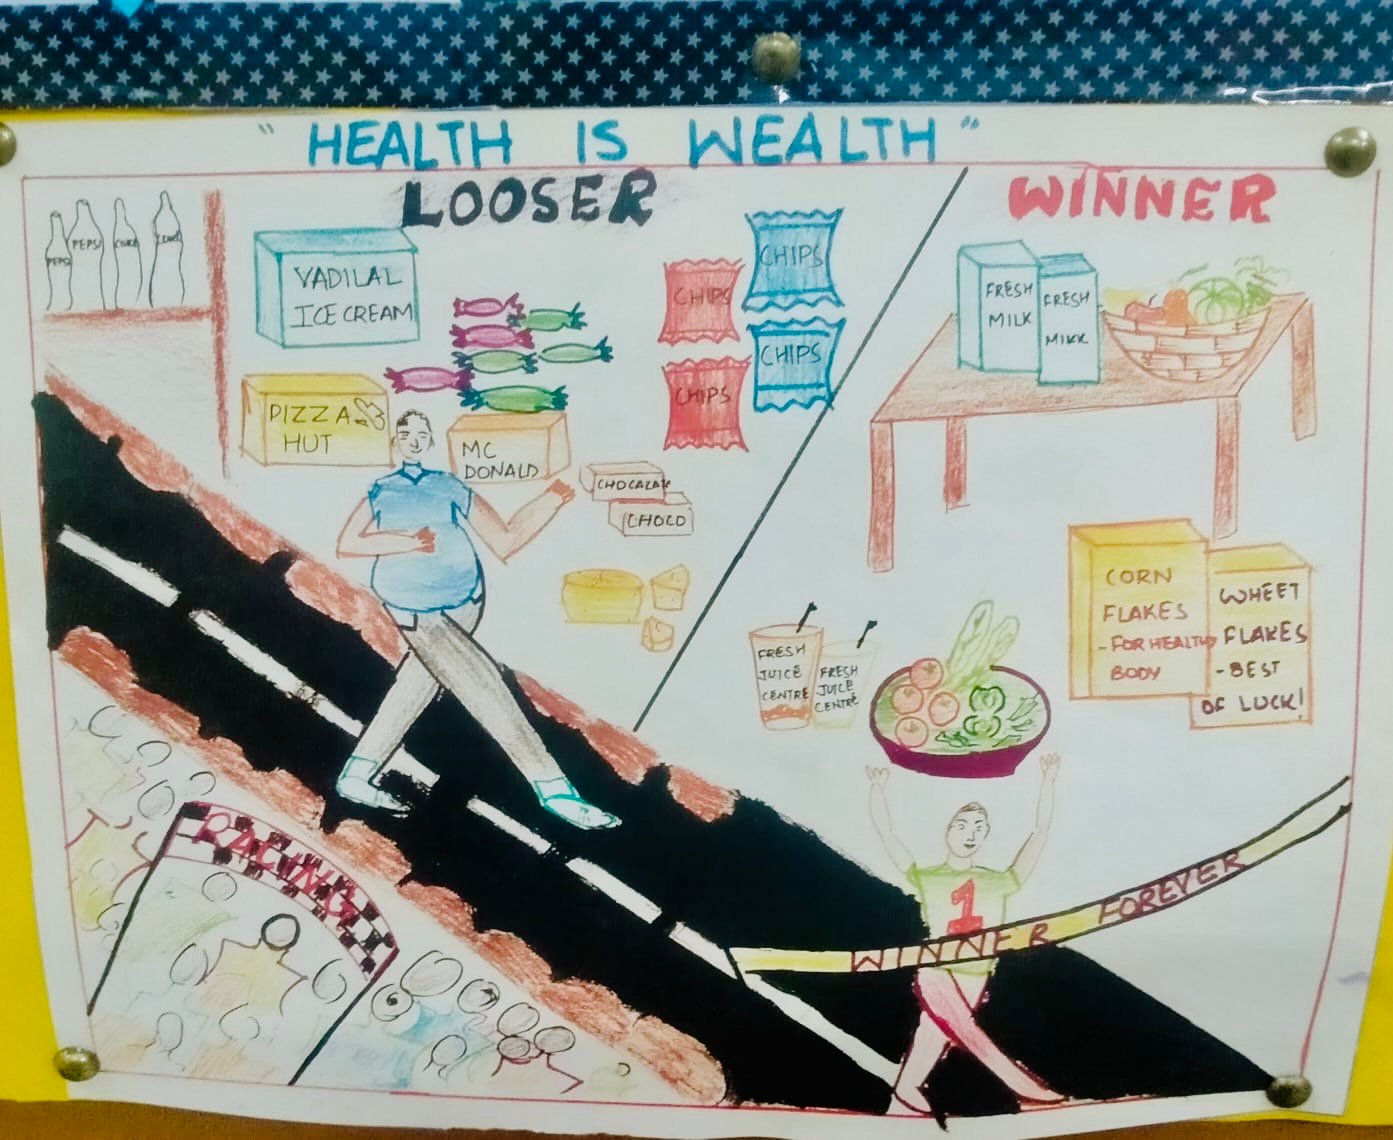 "HEALTH IS WEALTH"
LOOSER
WINNER
PEPSI
PEPSI
COKE
COKE
VADILAL
ICE CREAM
CHIPS
CHIPS
CHIPS
CHIPS
PIZZA
HUT
MC
DONALD
CHOCALATE
CHOCO
FRESH
MILK
FRESH
MIKK
CORN
FLAKES
- FOR HEALTHY
BODY
WHEET
FLAKES
- BEST
OF LUCK!
FRESH
JUICE
CENTRE
FRESH
JUICE
CENTRE
RACING
1
WINNER FOREVER